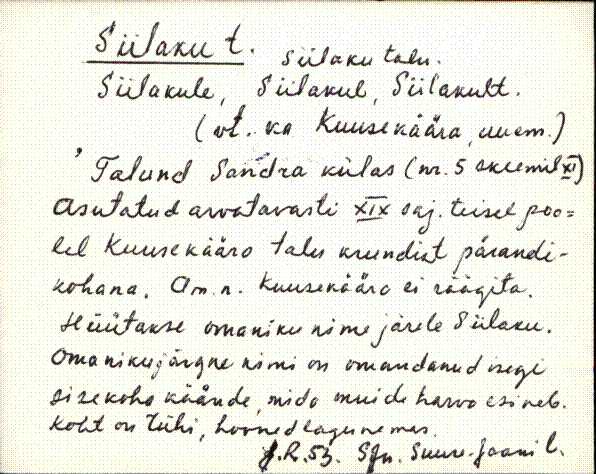 Siilaku t. Siilaku talu.
Siilakule, Siilakul, Siilakult.
(vt. ka Kuusekäära, uuem.)
' Talund Sandra külas (nr. 5 skeemil XI)
Asutatud arvatavasti XIX saj. teisel poo=
lel Kuusekäära talu krundist pärandi-
kohana. Am. n. Kuusekäära ei räägita.
Hüütakse omaniku nime järele Siilaku.
Omanikujärgne nimi on omandanud isegi
sisekoha käände, mida muide harva esineb.
Koht on tühi, hooned lagunemas.
J.R. 53. SJn. Suure-Jaani l.